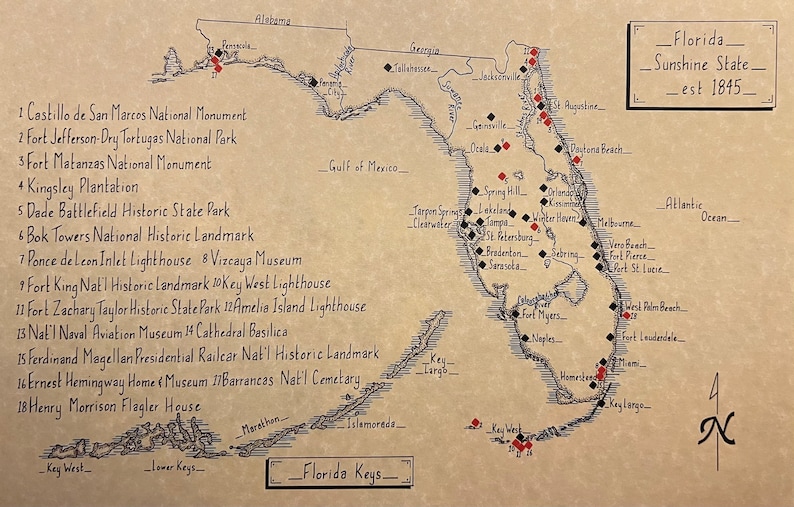 Alabama
Georgia
Florida
Sunshine State
est 1845
Pensacola
13
17
Panama
City
Apalachicola
River
Tallahassee
Suwanee
River
Jacksonville
11
4
St. Augustine
Gainsville
Ocala
9
Daytona Beach
7
Gulf of Mexico
5
Spring Hill
Orlando
Kissimmee
Atlantic
Ocean
Tarpon Springs
Lakeland
Clearwater
Tampa
Winter Haven
6
Melbourne
St. Petersburg
Vero Beach
Bradenton
Sebring
Fort Pierce
Sarasota
Port St. Lucie
River
Fort Myers
West Palm Beach
18
Naples
Fort Lauderdale
Miami
Homestead
Key Largo
2
Key West
10
11
16
N
1 Castillo de San Marcos National Monument
2 Fort Jefferson-Dry Tortugas National Park
3 Fort Matanzas National Monument
4 Kingsley Plantation
5 Dade Battlefield Historic State Park
6 Bok Towers National Historic Landmark
7 Ponce de Leon Inlet Lighthouse 8 Vizcaya Museum
9 Fort King Nat'l Historic Landmark 10 Key West Lighthouse
11 Fort Zachary Taylor Historic State Park 12 Amelia Island Lighthouse
13 Nat'l Naval Aviation Museum 14 Cathedral Basilica
15 Ferdinand Magellan Presidential Railcar Nat'l Historic Landmark
16 Ernest Hemingway Home & Museum 17 Barrancas Nat'l Cemetary
18 Henry Morrison Flagler House
Key
Largo
Islamorada
Marathon
Lower Keys
Key West
Florida Keys